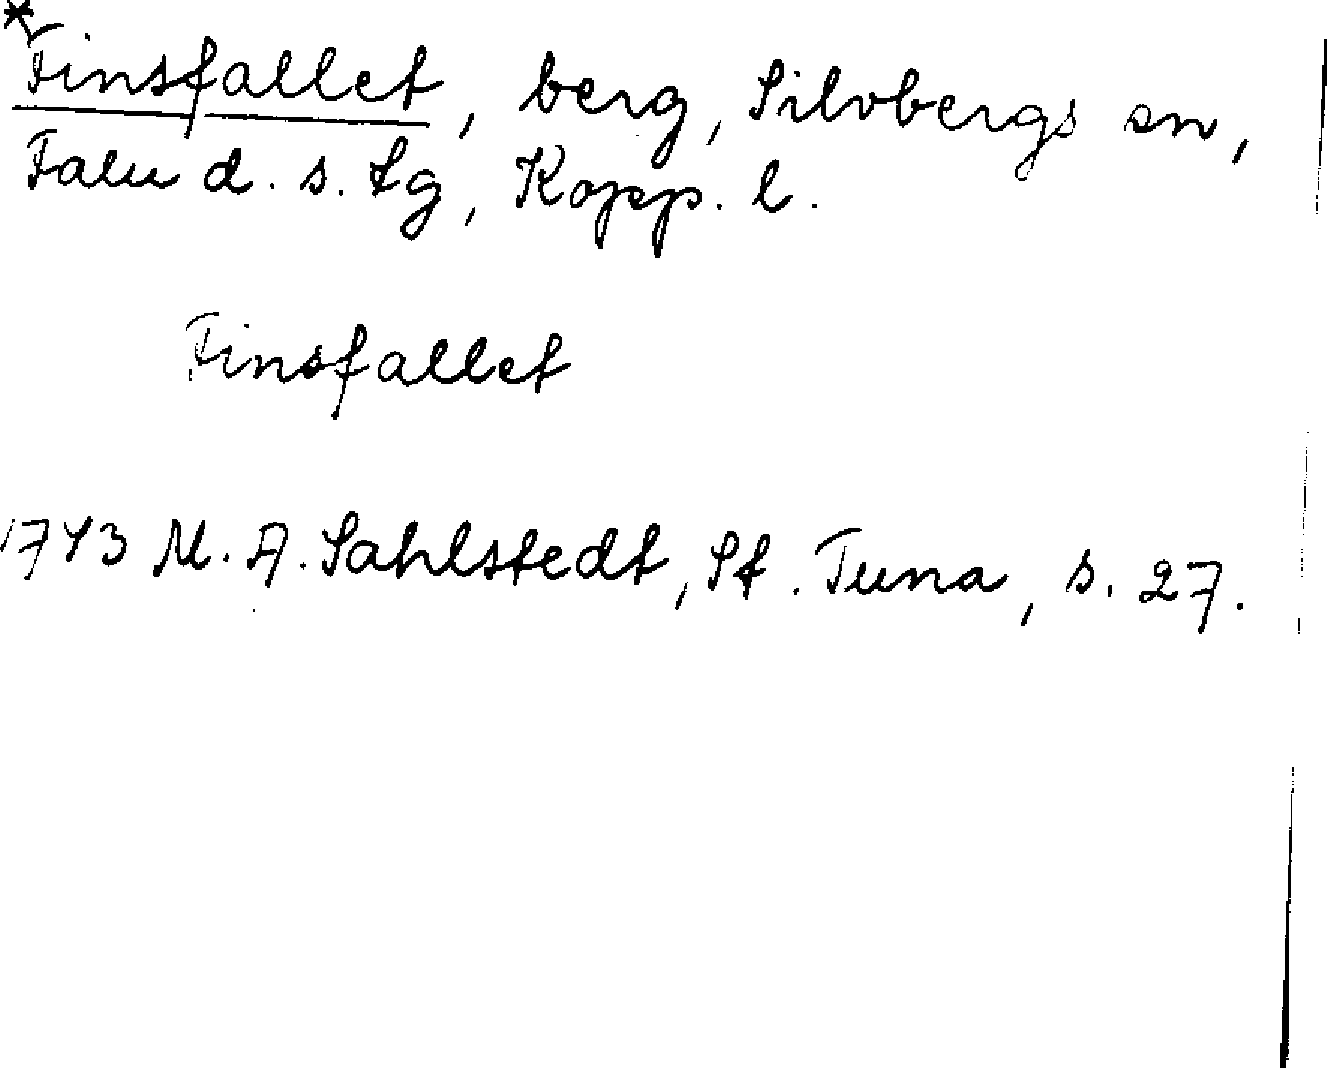 *Finsfallet, berg, Silvbergs sn,
Falu d. s. tg, Kopp. l.
Finsfallet
1743 M. A. Sahlstedt, St. Tuna, s. 27.